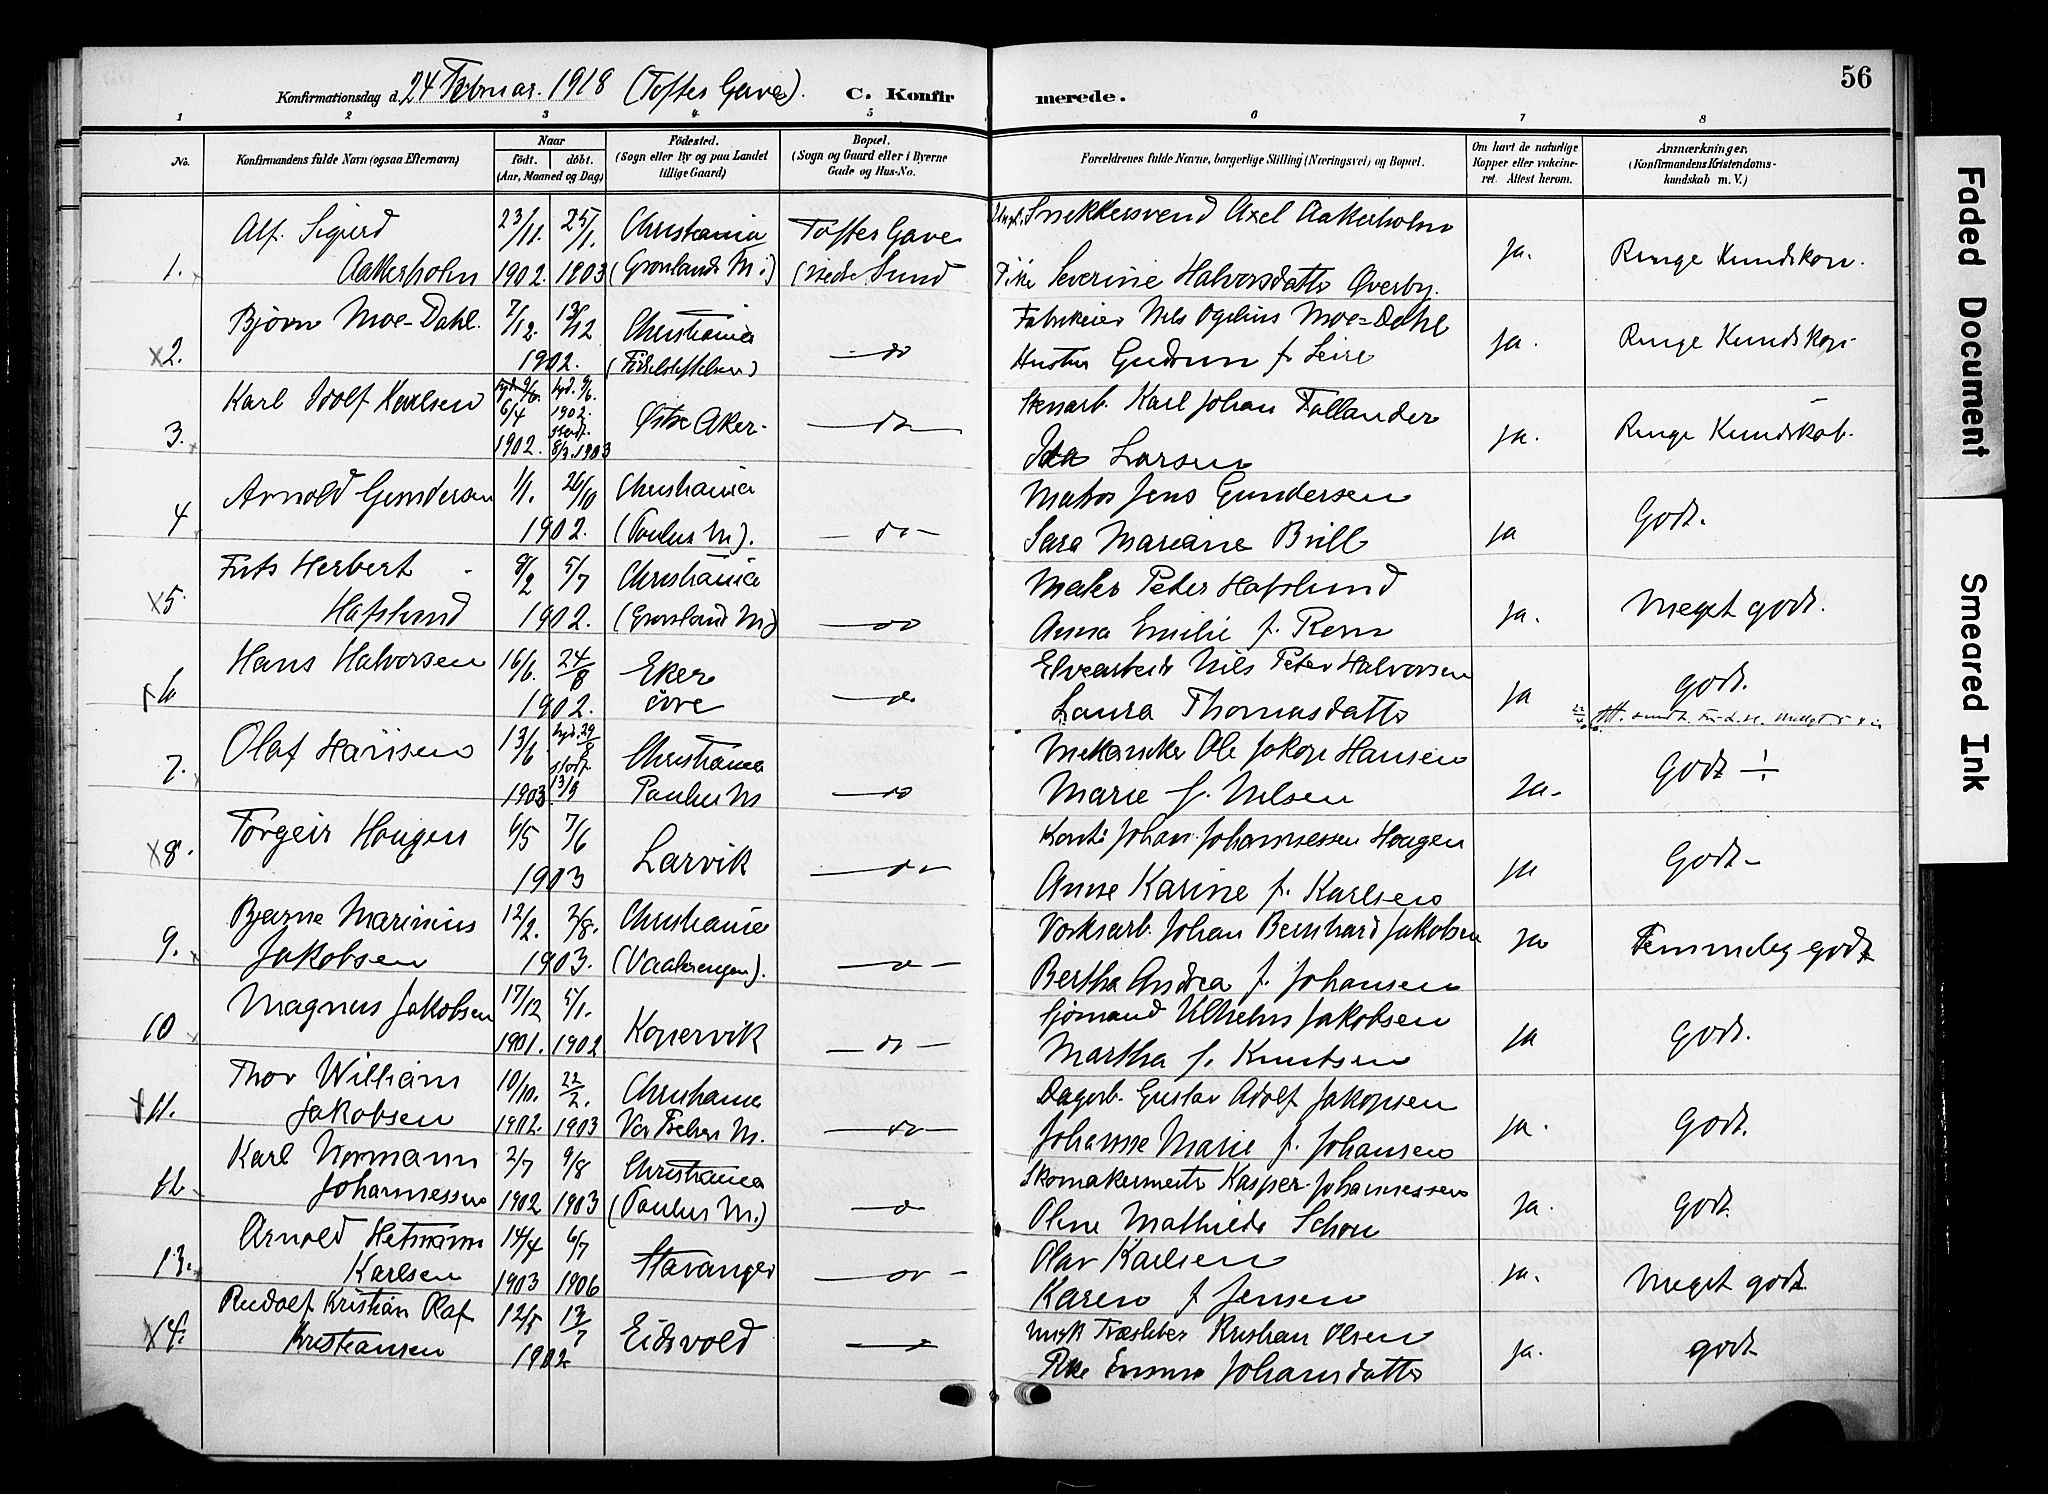 Konfirmationsdag d. 24 Februar. 1918 (Toftes Gave). C. Konfirmerede. 56
1 2 3 4 5 6 7 8
No.
Konfirmandens fulde Navn (ogsaa Efternavn)
Naar
født. døbt.
(Aar, Maaned og Dag)
Fødested.
(Sogn eller By og paa Landet
tillige Gaard)
Bopæl.
(Sogn og Gaard eller i Byerne
Gade og Hus-No.
Forældrenes fulde Navne, borgerlige Stilling (Næringsvei) og Bopæl.
Om havt de naturlige
Kopper eller vakcine-
ret. Attest herom.
Anmærkninger.
(Konfirmandens Kristendoms-
kundskab m. V.)
Alf. Sigurd 23/11. 25/1. Christiania Toftes Gave Snekkersvend Axel Aakerholm
1. Aakerholm 1902. 1903 (Grønlands M.) Pike Severine Halvorsdatter Øverby. Ja. Ringe Kundskap.
Bjørn Moe-Dahl. 7/12. 13/12 Christiania Fabrikeier Nils Moe-Dahl
x2. 1902. (Fødselsstiftelsen) do Hustru Gudrun f. Leire Ja. Ringe Kundskap.
Karl Adolf Karlsen 6/4 1902. Østre Aker. Stenarb. Karl Johan Fallander
3. 1902. 1903 do Ida Larsen Ja. Ringe Kundskab.
Arnold Gundersen 1/1. 26/10 Christiania Matros Jens Gundersen
4 1902. (Paulus M). do Sara Mariane Brill Ja Godt.
Frits Herbert 8/2 5/7 Christiania Maler Peter Hafslund
x5. Hafslund 1902. (Grønland M.) do Anna Emilie f. Rem Ja. Meget godt.
Hans Halvorsen 16/6. 24/8 Eker Elvearbeider Nils Peter Halvorsen
x6 1902. øvre do Laura Thomasdatter Ja Godt.
Olaf Hansen 13/6 29/8 Christiania Mekaniker Ole Jakop Hansen
7. 1903. 13/9 Paulus M do Marie f. Nilsen Ja. Godt ÷
Torgeir Hougen 6/5 7/6 Larvik Johan Johannessen Hougen
x8. 1903 do Anne Karine f. Karlsen Ja Godt
Bjarne Marinius 12/2. 2/8. Christiania Johan Bernhard Jakobsen
9. Jakobsen 1903. (Vaalerengen). do Bertha Andrea f. Johansen Ja Temmelig godt
Magnus Jakobsen 17/12 5/1. Kopervik Sjømand Vilhelm Jakobsen
10 1901. 1902 do Martha f. Knutsen Ja Godt.
Thor William 10/10. 22/2. Christiania Dagarb. Gustav Adolf Jakopsen
x11. Jakobsen 1902. 1903 Vor Frelsers M. do Johanne Marie f. Johansen Ja. Godt.
Karl Normann 2/7 9/8 Christiania Skomakermester Kasper Johannessen
12 Johannessen 1902 1903 (Paulus M.) do Oline Mathilde Schou Ja. Godt.
Arnold Hetmann 14/4 6/7 Stavanger Olav Karlsen
13. Karlsen 1903 1906 do Karen f Jensen Ja. Meget godt.
Rudolf Kristian Olaf 12/5 13/7 Eidsvold Kristian Olsen
x14. Kristiansen 1902 do Pike Emma Johansdatter Ja. godt
Faded Document
Smeared Ink